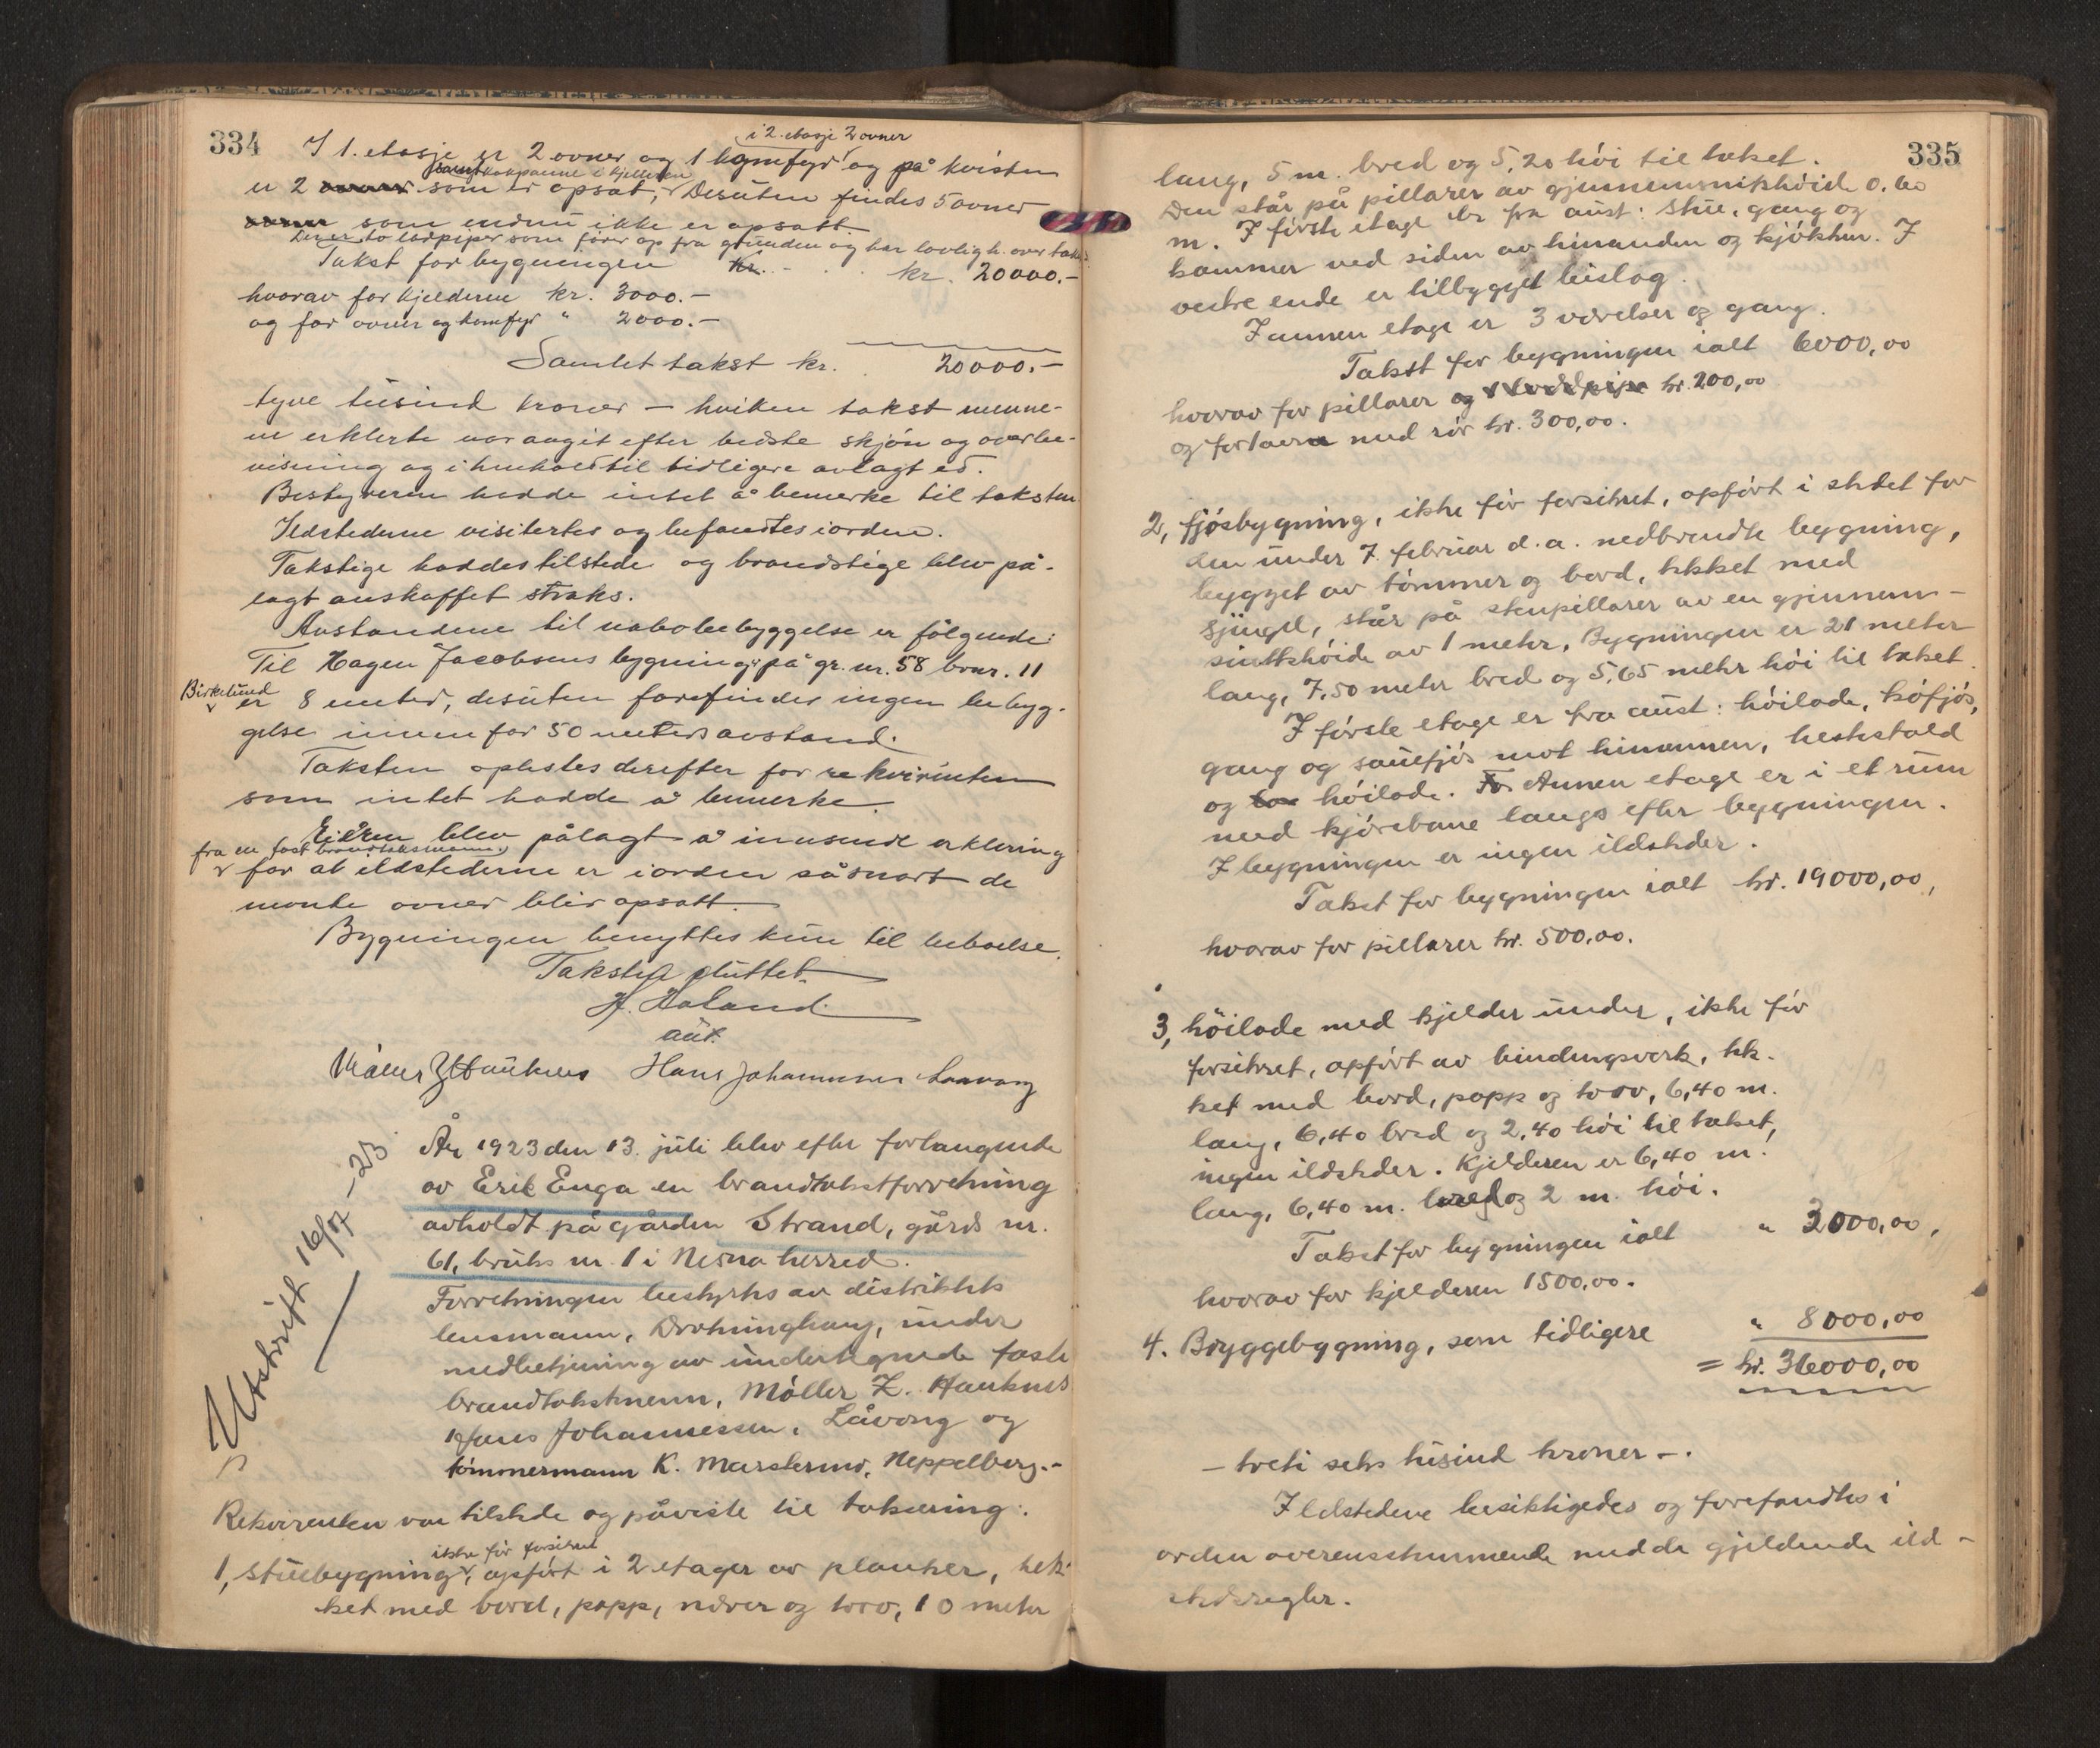 334
i 2. etasje 2 ovner
I 1. etasje er 2 ovner og 1 komfyr og på kvisten
samt kokpanne i kjelleren
er 2 som er opsat, Desuten findes 5 ovner
som endnu ikke er opsatt.
Der er to ildpiper som fører op fra grunden og har lovlig h. over taket
Takst for bygningen Kr. - . . kr. 20000.-
hvorav for kjelderne kr. 3000.-
og for ovner og komfyr " 2000.-
Samlet takst kr. 20000.-
tyve tusind kroner — hvilken takst menne-
ne erklerte var avgit efter bedste skjøn og overbe-
visning og i henhold til tidligere avlagt ed.
Bestyreren hadde intet å bemerke til taksten
Ildstederne visitertes og befandtes i orden.
Takstige haddes tilstede og brandstige blev på-
lagt anskaffet straks.
Avstandene til nabobebyggelse er følgende:
Til Hagen Jacobsens bygning på gr. nr. 58 brnr. 11
Birkelund
er 8 meter, desuten forefindes ingen bebyg-
gelse innenfor 50 meters avstand.
Taksten oplestes derefter for rekvirenten
som intet hadde å bemerke.
Eieren blev pålagt å innsende erklering
fra en fast brandtakstmann
for at ildstederne er i orden såsnart de
nevnte ovner blir opsatt.
Bygningen benyttes kun til beboelse.
Taksten sluttet.
H. Haland
aut.
Møller Z Hauknes Hans Johannessen Laavong
Utskrift 16/7 -23
År 1923 den 13. juli blev efter forlangende
av Erik Enga en brandtakstforretning
avholdt på gården Strand, gårds nr.
61, bruks nr. 1 i Nesna herred.
Forretningen bestyrtes av distriktets
lensmann, Dronninghaug, under
medbetjening av undertegnede faste
brandtakstmenn, Møller Z. Hauknes
Hans Johannessen, Låvong og
tømmermann K. Marslermo, Neppelberg.-
Rekvirenten var tilstede og påviste til taksering:
ikke før forsikret
1, stuebygning, opført i 2 etager av planker, tek-
ket med bord, papp, never og torv, 10 meter
335
lang, 5 m. bred og 5,20 høi til taket.
Den står på pillarer av gjennemsnitshøide 0.60
m. I første etage er fra aust: stue, gang og
kammer ved siden av hinanden og kjøkken. I
vestre ende er tilbygget bislag.
I annen etage er 3 værelser og gang.
Takst for bygningen ialt 6000,00
hvorav for pillarer og kr. 200,00
og for ovn med rør kr. 300,00.
2, fjøsbygning, ikke før forsikret, opført i stedet for
den under 7. februar d.a. nedbrendte bygning,
bygget av tømmer og bord, tekket med
sjingel, står på stenpillarer av en gjennem-
snittshøide av 1 meter, Bygningen er 21 meter
lang, 7,50 meter bred og 5,65 meter høi til taket.
I første etage er fra aust: høilade, kofjøs,
gang og sauefjøs mot hinannen, hestestald
og høilade. Annen etage er i et rum
med kjørebane langs efter bygningen.
I bygningen er ingen ildsteder.
Takst for bygningen ialt kr. 19000,00,
hvorav for pillarer kr. 500,00.
3, høilade med kjelder under, ikke før
forsikret, opført av bindingsverk, tek-
ket med bord, papp og torv, 6,40 m.
lang, 6,40 bred og 2,40 høi til taket,
ingen ildsteder. Kjelderen er 6,40 m.
lang, 6,40 m. bred og 2 m. høi.
Takst for bygningen ialt " 3000,00,
hvorav for kjelderen 1500,00.
4. Bryggebygning, som tidligere " 8000,00
= kr. 36000,00
— treti seks tusind kroner —.
Ildstedene besiktigedes og forefandtes i
orden overensstemmende med de gjeldende ild-
stedsregler.